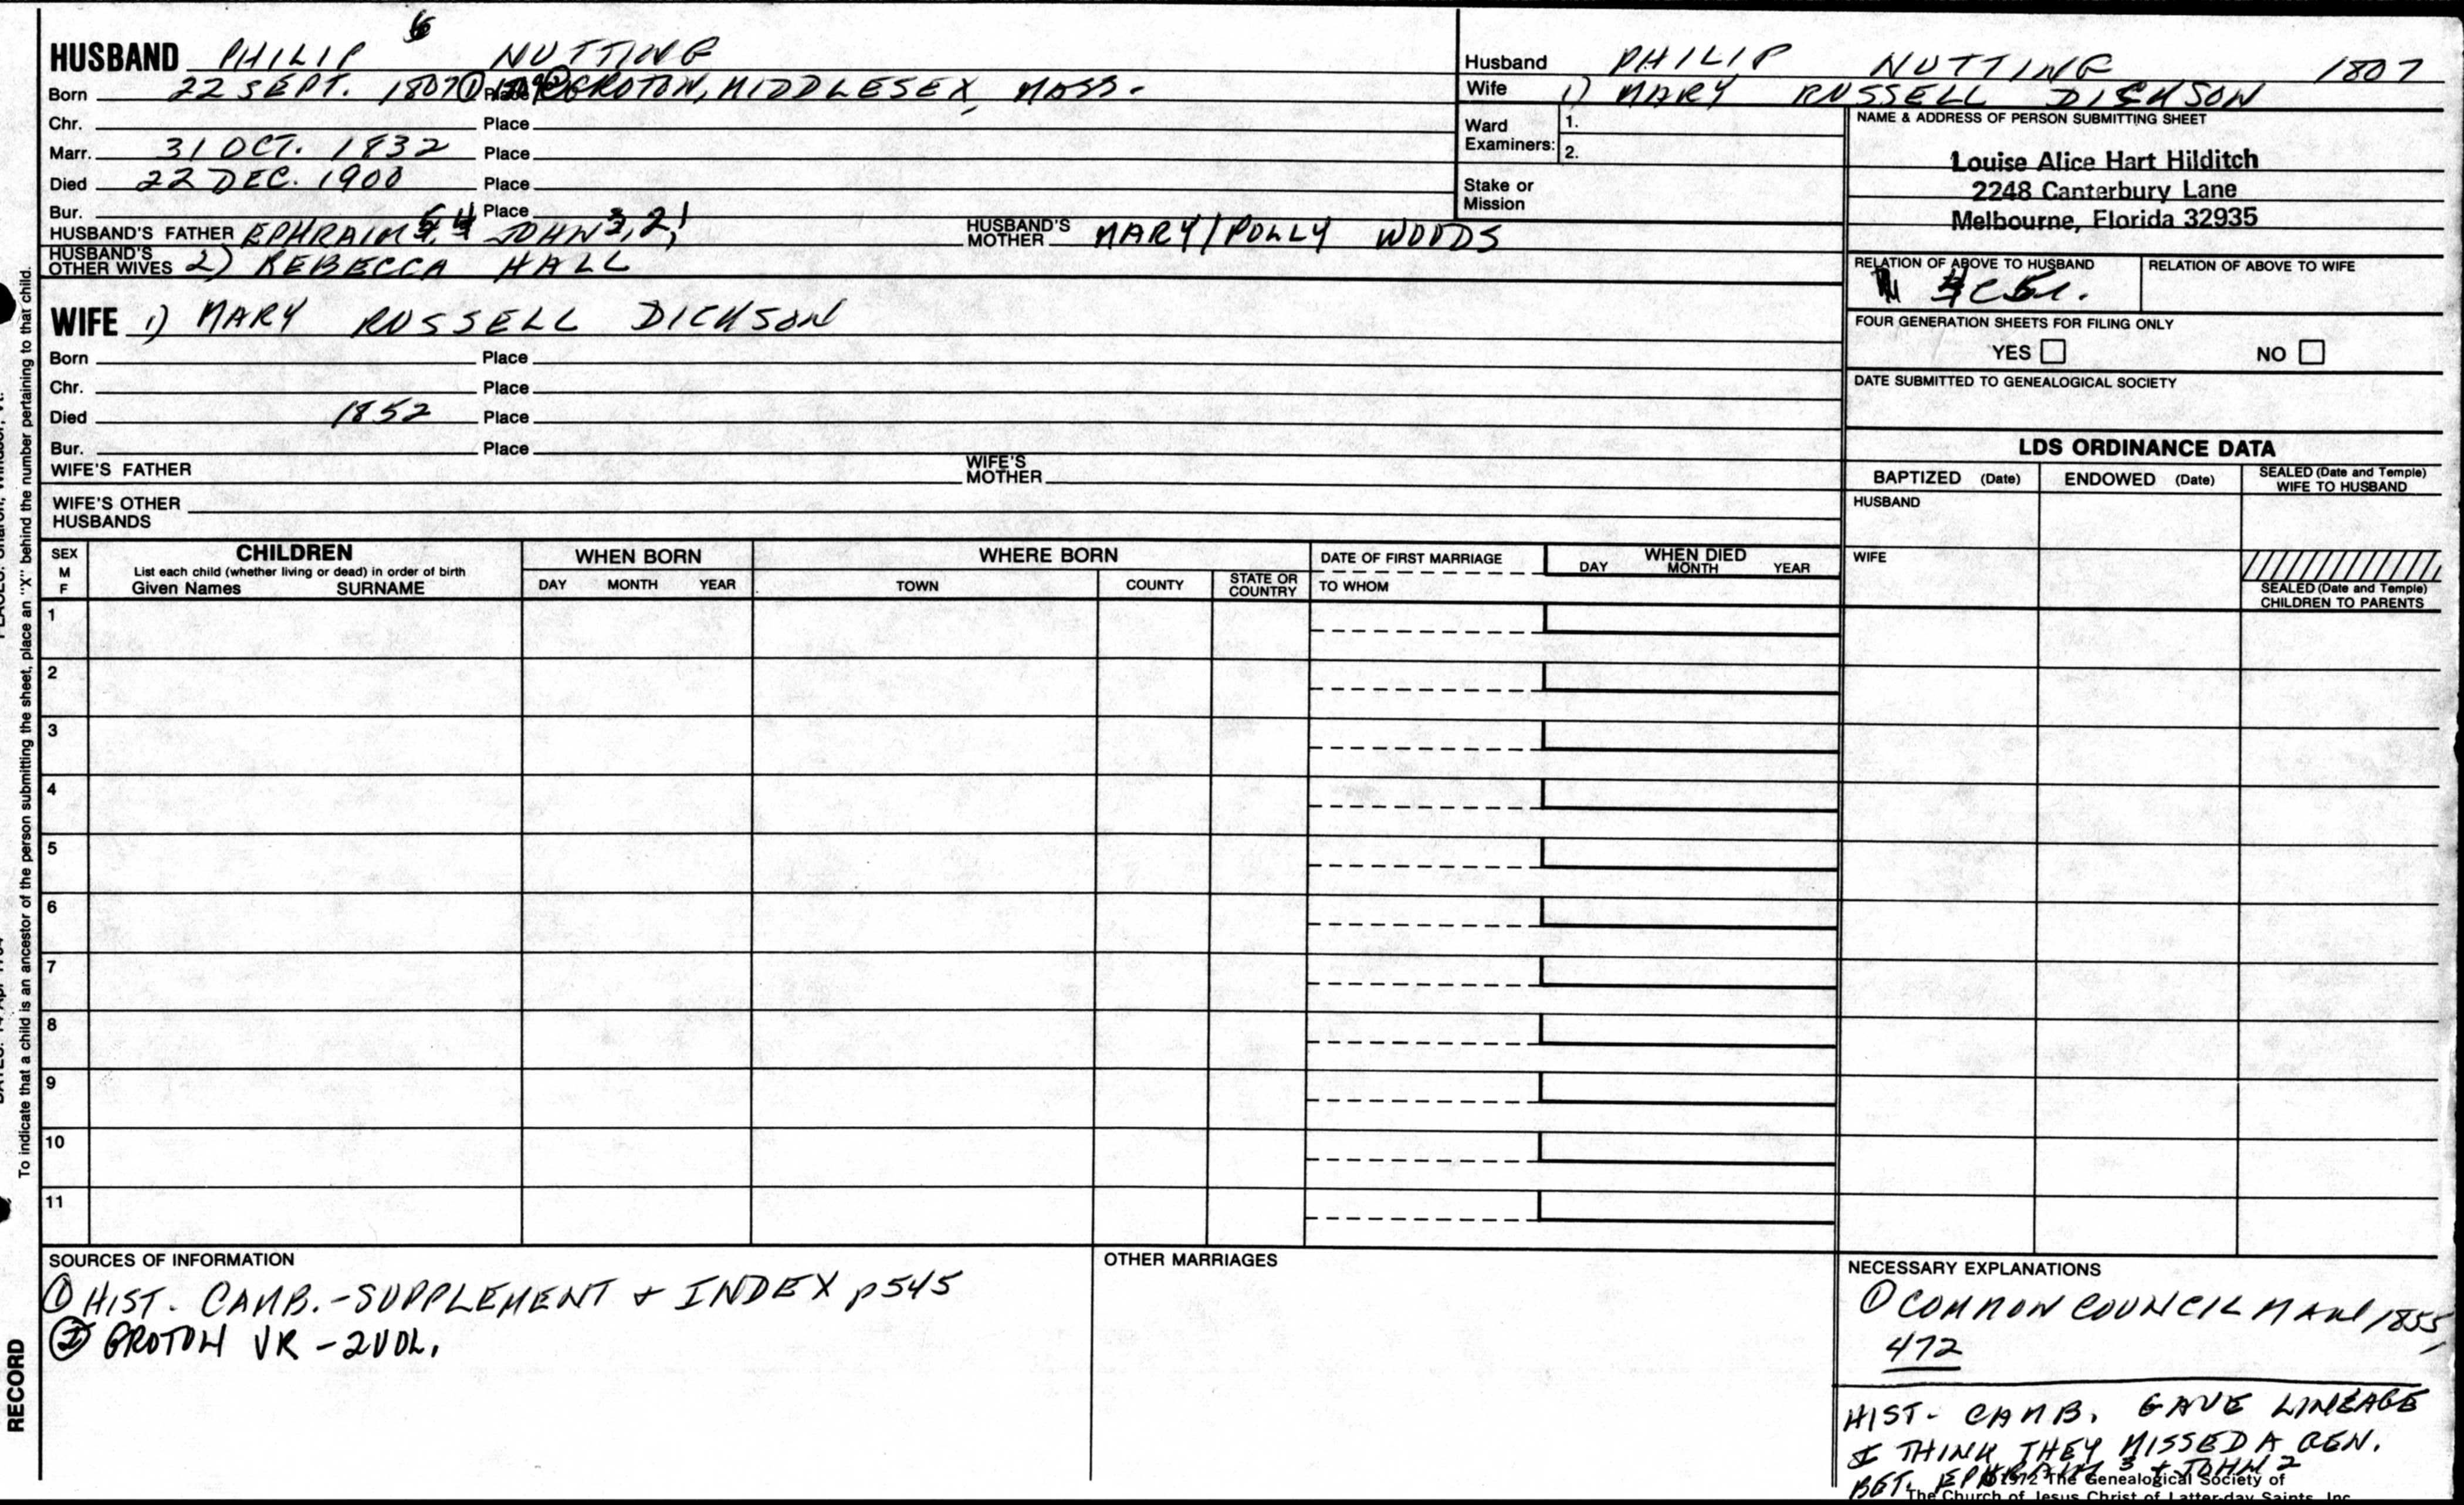 6
HUSBAND PHILIP NUTTING
Born 22 SEPT. 1807 ① Place GROTON, MIDDLESEX, MASS.
Chr. Place
Marr. 31 OCT. 1832 Place
Died 22 DEC. 1900 Place
Bur. Place
HUSBAND'S FATHER EPHRAIM 5, 4 JOHN 3, 2, 1 HUSBAND'S MOTHER MARY/POLLY WOODS
HUSBAND'S OTHER WIVES 2) REBECCA HALL
WIFE 1) MARY RUSSELL DICKSON
Born Place
Chr. Place
Died 1852 Place
Bur. Place
WIFE'S FATHER WIFE'S MOTHER
WIFE'S OTHER HUSBANDS
Husband PHILIP NUTTING 1807
Wife 1) MARY RUSSELL DICKSON
Ward Examiners: 1.
2.
Stake or Mission
NAME & ADDRESS OF PERSON SUBMITTING SHEET
Louise Alice Hart Hilditch
2248 Canterbury Lane
Melbourne, Florida 32935
RELATION OF ABOVE TO HUSBAND RELATION OF ABOVE TO WIFE
FOUR GENERATION SHEETS FOR FILING ONLY
YES NO
DATE SUBMITTED TO GENEALOGICAL SOCIETY
LDS ORDINANCE DATA
BAPTIZED (Date) ENDOWED (Date) SEALED (Date and Temple) WIFE TO HUSBAND
HUSBAND
WIFE
SEALED (Date and Temple) CHILDREN TO PARENTS
SEX M F
CHILDREN
List each child (whether living or dead) in order of birth
Given Names SURNAME
WHEN BORN
DAY MONTH YEAR
WHERE BORN
TOWN COUNTY STATE OR COUNTRY
DATE OF FIRST MARRIAGE
TO WHOM
WHEN DIED
DAY MONTH YEAR
1
2
3
4
5
6
7
8
9
10
11
SOURCES OF INFORMATION
① HIST. CAMB.-SUPPLEMENT + INDEX p545
② GROTON VR - 2VOL.
OTHER MARRIAGES
NECESSARY EXPLANATIONS
① COMMON COUNCIL MAN 1855,
472
HIST. CAMB. GAVE LINEAGE
I THINK THEY MISSED A GEN.
BET. EPHRAIM 3 + JOHN 2
The Genealogical Society of
The Church of Jesus Christ of Latter-day Saints, Inc.
To indicate that a child is an ancestor of the person submitting the sheet, place an "X" behind the number pertaining to that child.
RECORD